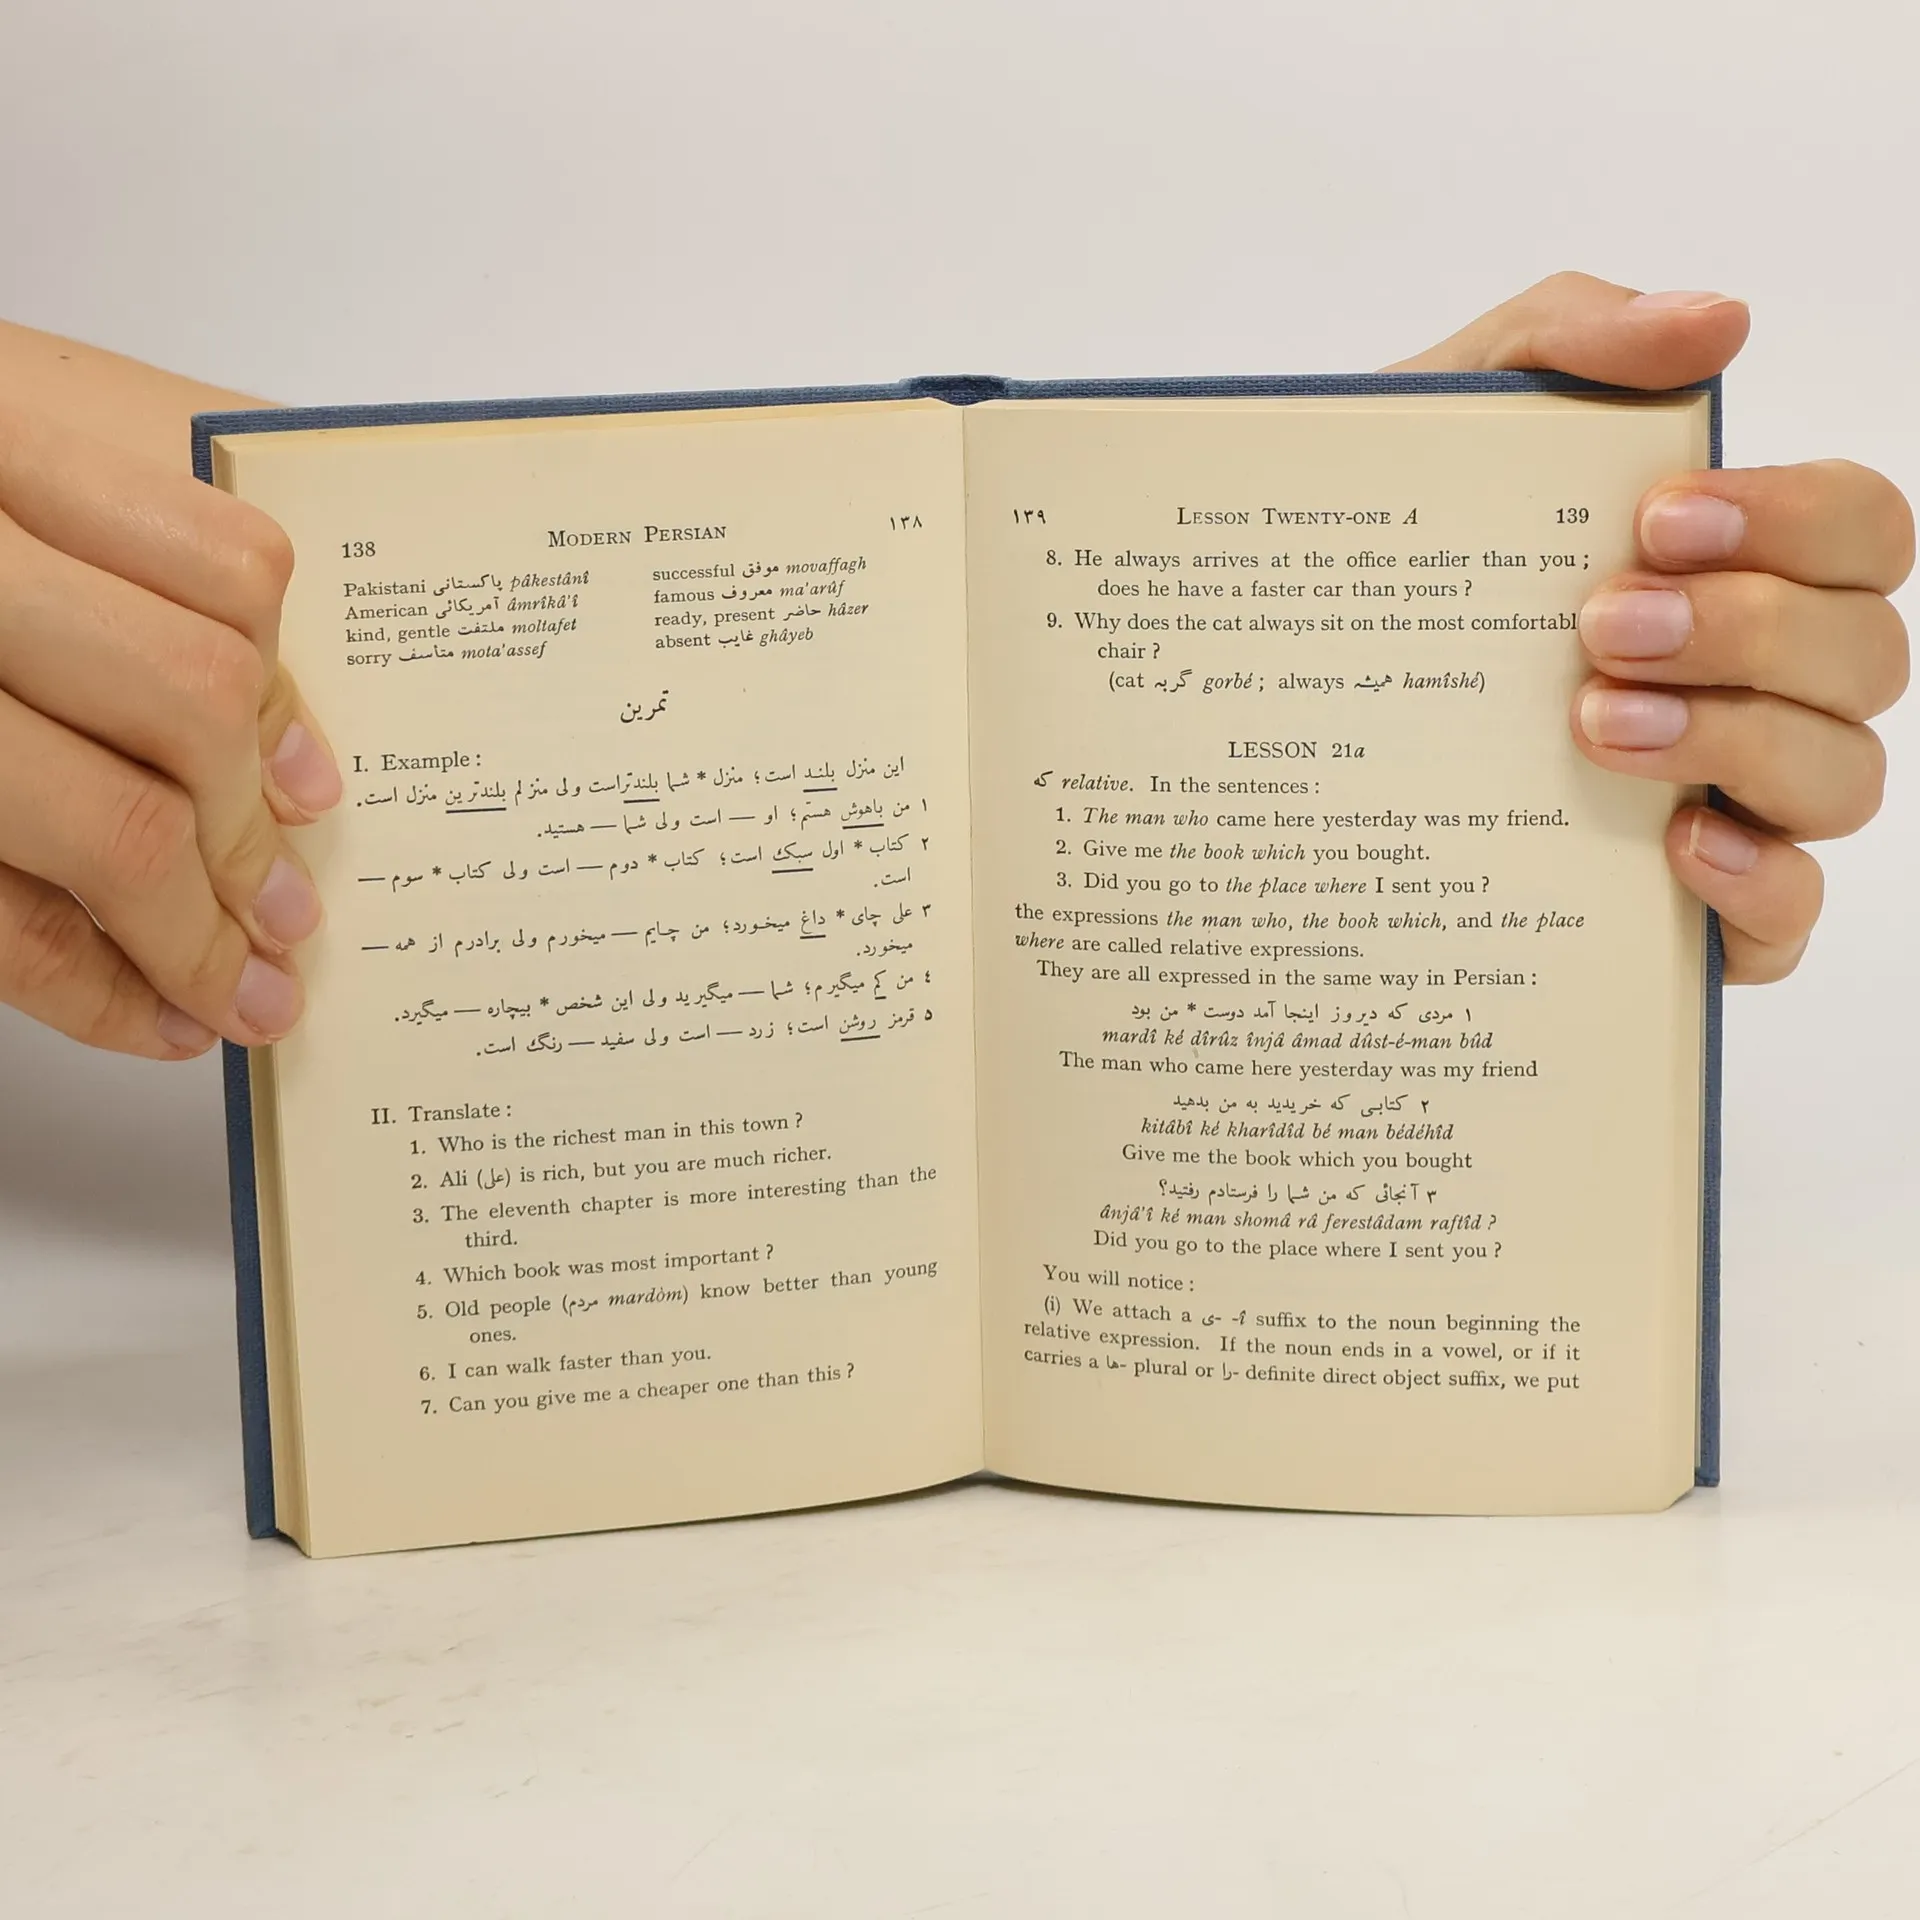 138 MODERN PERSIAN ۱۳۸
Pakistani پاکستانی pâkestânî
American آمریکائی âmrîkâ'î
kind, gentle ملتفت moltafet
sorry متأسف mota'assef
successful موفق movaffagh
famous معروف ma'arûf
ready, present حاضر hâzer
absent غایب ghâyeb
تمرین
I. Example :
این منزل بلند است؛ منزل * شما بلندتراست ولی منزلم بلندترین منزل است.
۱ من باهوش هستم؛ او — است ولی شما — هستید.
۲ کتاب * اول سبک است؛ کتاب * دوم — است ولی کتاب * سوم —
است.
۳ علی چای * داغ میخورد؛ من چایم — میخورم ولی برادرم از همه —
میخورد.
٤ من کم میگیرم؛ شما — میگیرید ولی این شخص * بیچاره — میگیرد.
۵ قرمز روشن است؛ زرد — است ولی سفید — رنگ است.
II. Translate :
1. Who is the richest man in this town ?
2. Ali (علی) is rich, but you are much richer.
3. The eleventh chapter is more interesting than the
third.
4. Which book was most important ?
5. Old people (مردم mardòm) know better than young
ones.
6. I can walk faster than you.
7. Can you give me a cheaper one than this ?
۱۳۹ LESSON TWENTY-ONE A 139
8. He always arrives at the office earlier than you ;
does he have a faster car than yours ?
9. Why does the cat always sit on the most comfortabl
chair ?
(cat گربه gorbé ; always همیشه hamîshé)
LESSON 21a
که relative. In the sentences :
1. The man who came here yesterday was my friend.
2. Give me the book which you bought.
3. Did you go to the place where I sent you ?
the expressions the man who, the book which, and the place
where are called relative expressions.
They are all expressed in the same way in Persian :
۱ مردی که دیروز اینجا آمد دوست * من بود
mardî ké dîrûz înjâ âmad dûst-é-man bûd
The man who came here yesterday was my friend
۲ کتابی که خریدید به من بدهید
kitâbî ké kharîdîd bé man bédéhîd
Give me the book which you bought
۳ آنجائی که من شما را فرستادم رفتید؟
ânjâ'î ké man shomâ râ ferestâdam raftîd ?
Did you go to the place where I sent you ?
You will notice :
(i) We attach a ی- -î suffix to the noun beginning the
relative expression. If the noun ends in a vowel, or if it
carries a ها- plural or را- definite direct object suffix, we put